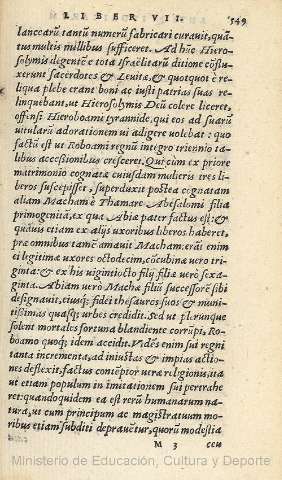 LIBER VII. 549
lancearũ tantũ numerũ fabricari curauit, quã-
tus multis millibus sufficeret. Ad hũc Hiero-
solymis degentẽ e tota Israëlitarũ ditione cõflu-
xerunt sacerdotes & Leuitæ, & quotquot è re-
liqua plebe erant boni ac iusti patrias suas re-
linquebant, ut Hierosolymis Deũ colere liceret,
offensi Hieroboami tyrannide, qui eos ad suarũ
uitularũ adorationem ui adigere uolebat: quo
factũ est ut Roboami regnũ integro triennio ta-
libus accessionibus cresceret. Qui cùm ex priore
matrimonio cognatæ cuiusdam mulieris tres li-
beros suscepisset, superduxit postea cognatam
aliam Machamẽ Thamare Abesalomi filia
primogenita, ex qua Abiæ pater factus est: &
quãuis etiam ex alijs uxoribus liberos haberet,
præ omnibus tamẽ amauit Macham: erãt enim
ei legitimæ uxores octodecim, cõcubinæ uero tri-
ginta: & ex his uigintiocto filij, filiæ uerò sexa-
ginta. Abiam uerò Machæ filiũ successorẽ sibi
designauit, eiusq; fidei thesauros suos & muni-
tissimas quasq; urbes credidit. Sed ut plerunque
solent mortales fortuna blandiente corrũpi, Ro-
boamo quoq; idem accidit. Vidẽs enim sui regni
tanta incrementa, ad iniustas & impias actio-
nes deflexit, factus contẽptor ueræ religionis, ita
ut etiam populum in imitationem sui pertrahe-
ret: quandoquidem ea est rerũ humanarum na-
tura, ut cum principum ac magistratuum mo-
ribus etiam subditi deprauẽtur, quorũ modestia
M 3 ceu
Ministerio de Educación, Cultura y Deporte